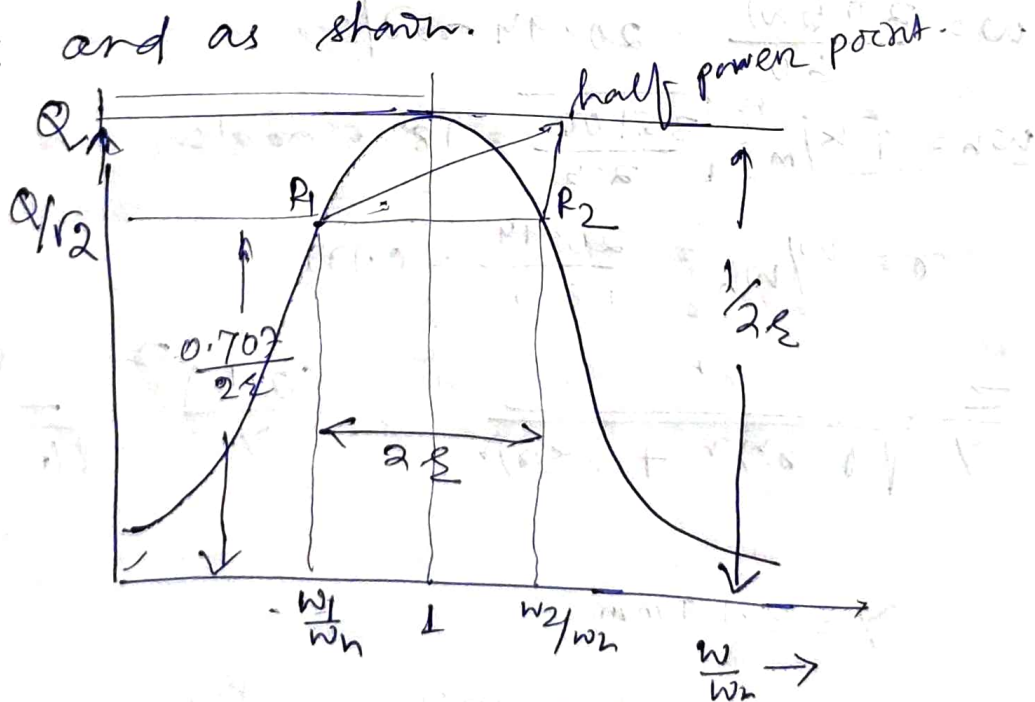 and as shown.
half power point.
Q
Q/√2
R1
R2
0.707
2ξ
1/2ξ
2ξ
w1/wn
1
w2/wn
w/wn →